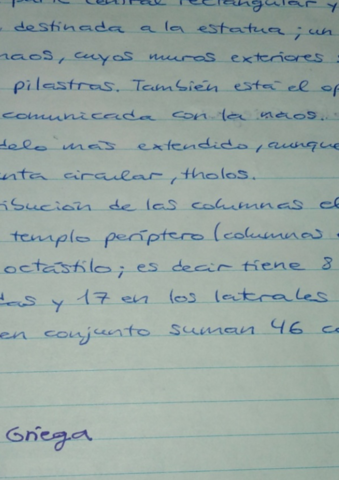 central rectangular y
destinada a la estatua; un
naos, cuyos muros exteriores
pilastras. También está el op
comunicada con la naos.
delo más extendido, aunque
nta circular, tholos.
ibución de las columnas el
templo períptero (columnas
octástilo; es decir tiene 8
das y 17 en los laterales
en conjunto suman 46 co
Griega